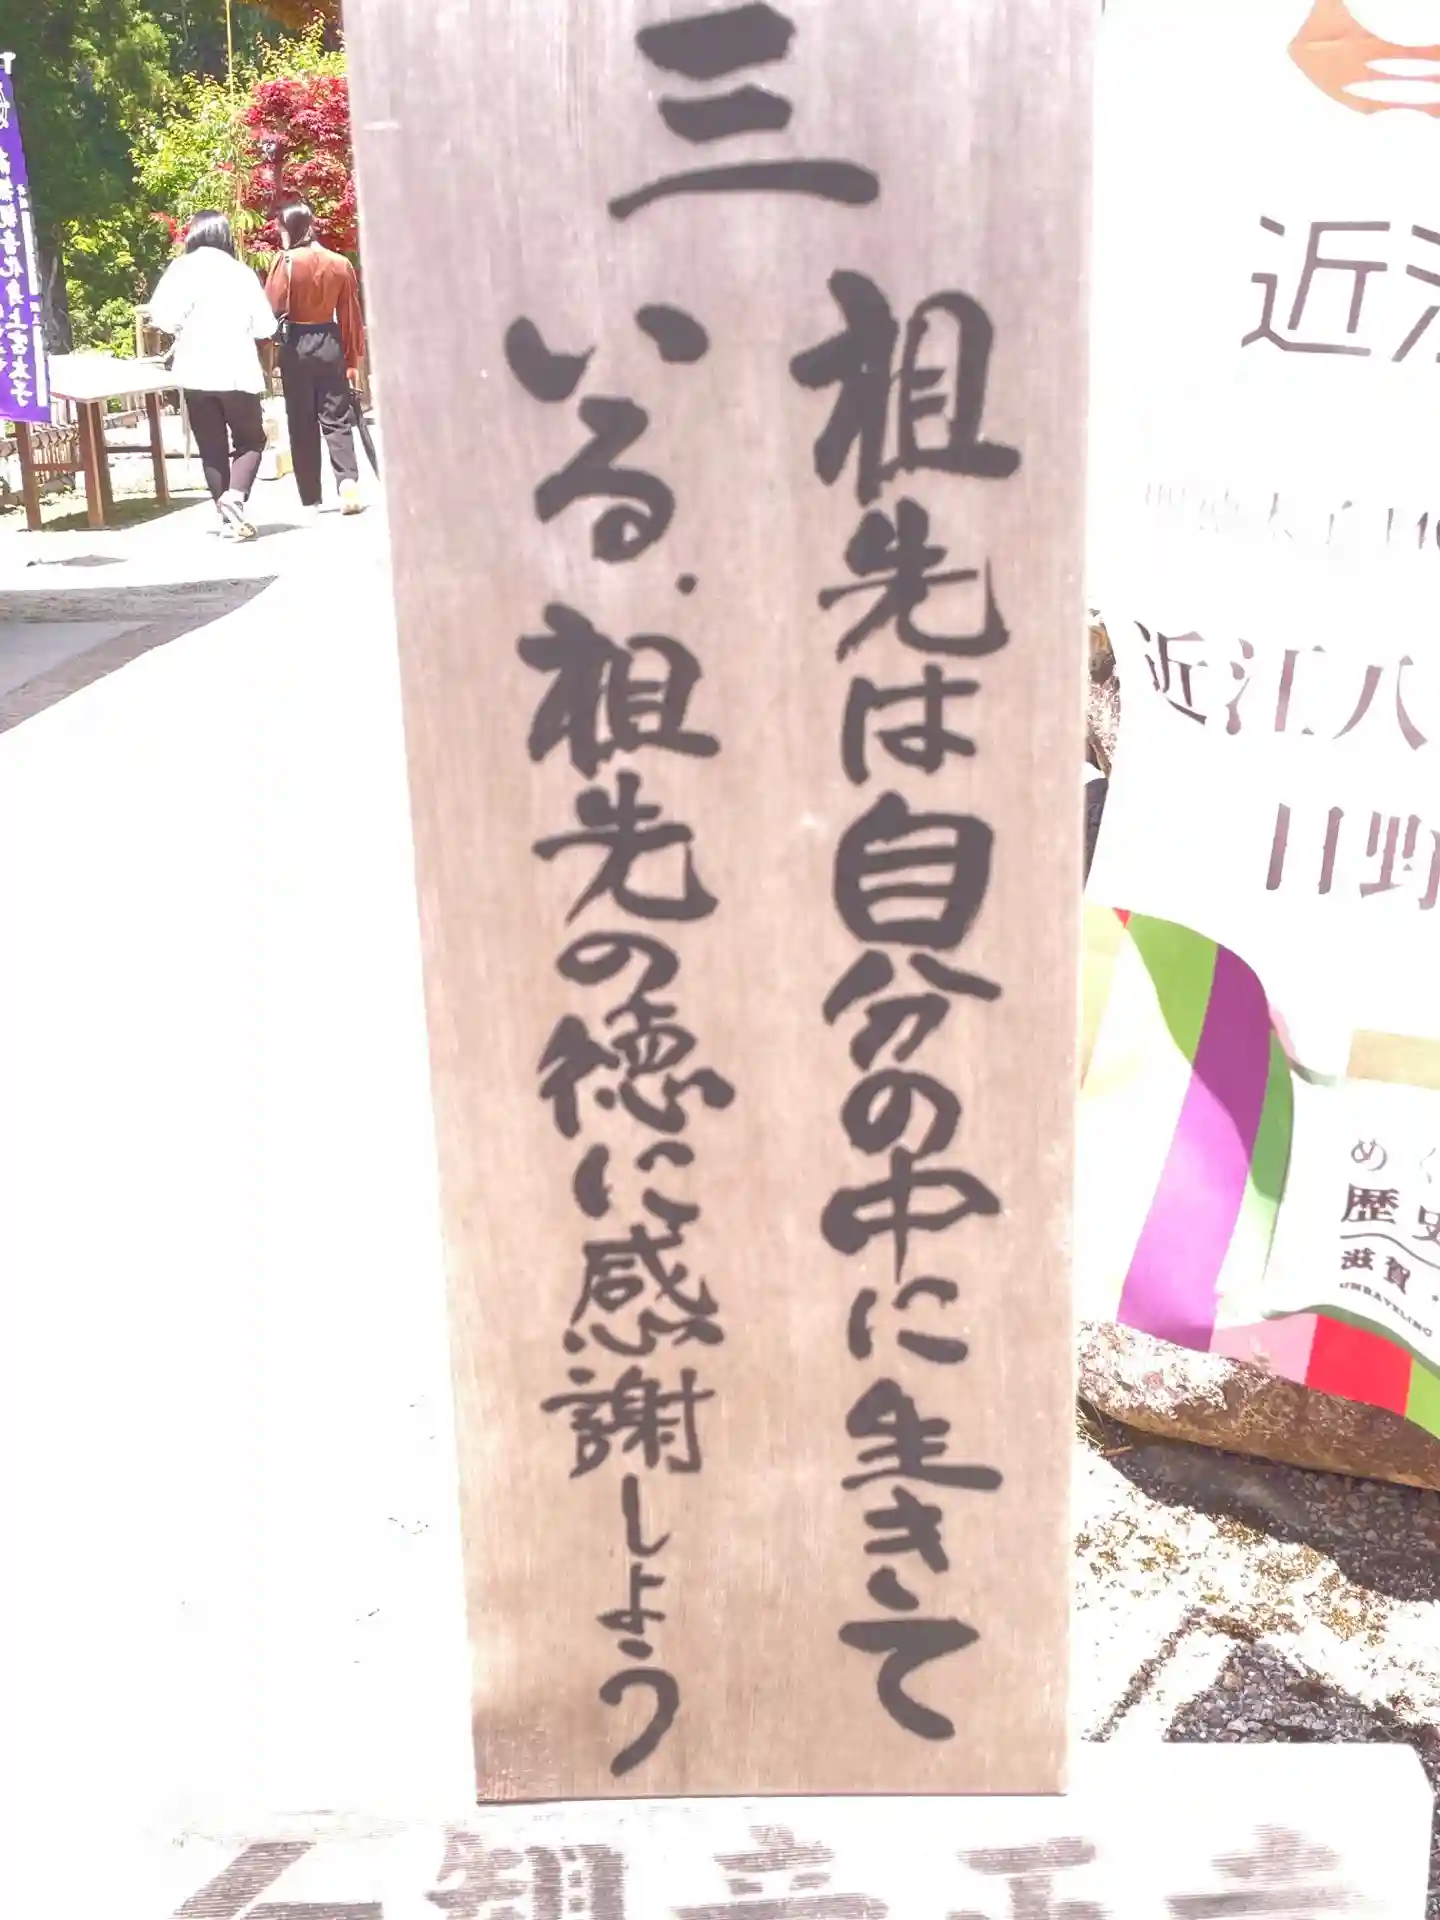 三
祖先は自分の中に生きて
いる.祖先の徳に感謝しよう
近江
近江八
日野
めぐ
歴史
滋賀・
UNRAVELING
観音正寺